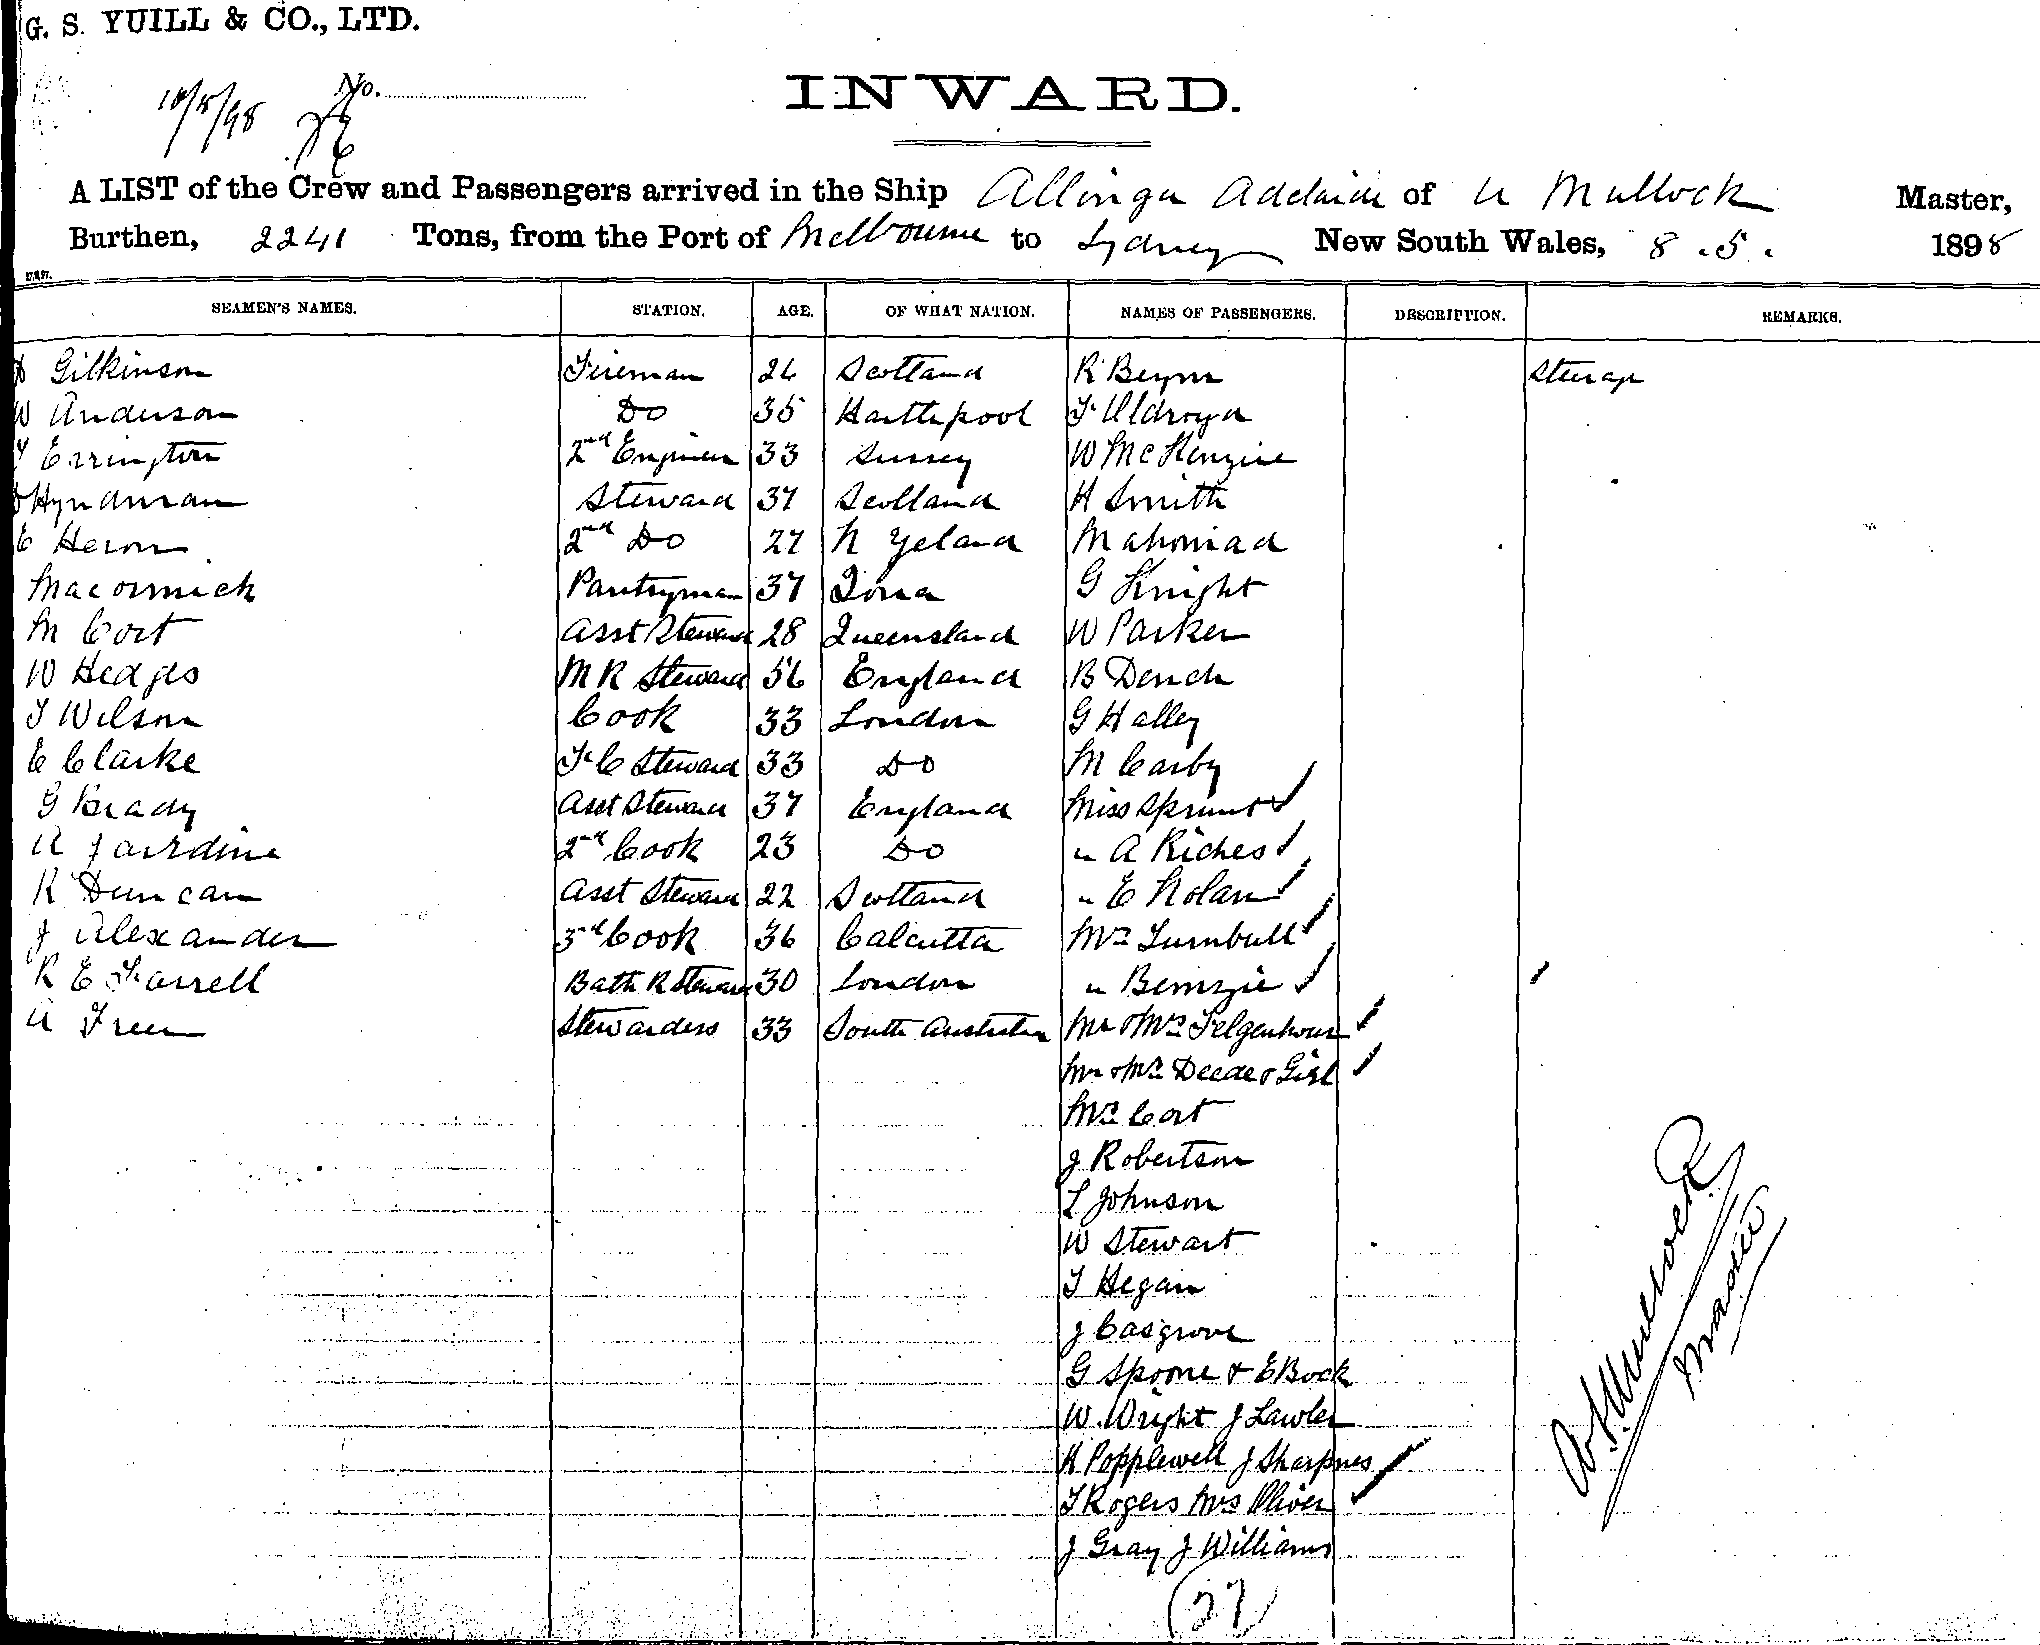 G. S. YUILL & CO., LTD.
10/5/98 No.
INWARD.
A LIST of the Crew and Passengers arrived in the Ship Allinga Adelaide of A Mullock Master,
Burthen, 2241 Tons, from the Port of Melbourne to Sydney New South Wales, 8.5. 1898
SEAMEN'S NAMES. STATION. AGE. OF WHAT NATION. NAMES OF PASSENGERS. DESCRIPTION. REMARKS.
Gilkinson Fireman 26 Scotland R Steerage
W Anderson Do 35 Harthpool
Errington 2nd Engineer 33 Surrey W McKenzie
Hyndman Steward 37 Scotland H Smith
E Heron 2nd Do 27 N Zeland Mahomad
Macormick Pantryman 37 Iona G Knight
M Cort Asst Steward 28 Queensland W Parker
W Hedges M R Steward 56 England B Dench
T Wilson Cook 33 London G Halley
E Clarke F C Steward 33 Do M Carby
G Brady Asst Steward 37 England Miss Sprunt
A Jarrdine 2nd Cook 23 Do " A Riches
R Duncan Asst Steward 22 Scotland " E Nolan
J Alexander 3rd Cook 36 Calcutta Mrs Turnbull
R E Farrell Bath R Steward 30 London "
A Freer Stewardess 33 South Australia Mr & Mrs
Mr & Mrs & Girl
Mrs Cort
J Robertson
L Johnson
W Stewart
T Hegan
J Casgrove
G Spoone & E Bock
W. Wright J Lawler
H Popplewell J Sharpnes
T Rogers Mrs Oliver
J Gray J Williams
(37)
A Mullock
Master